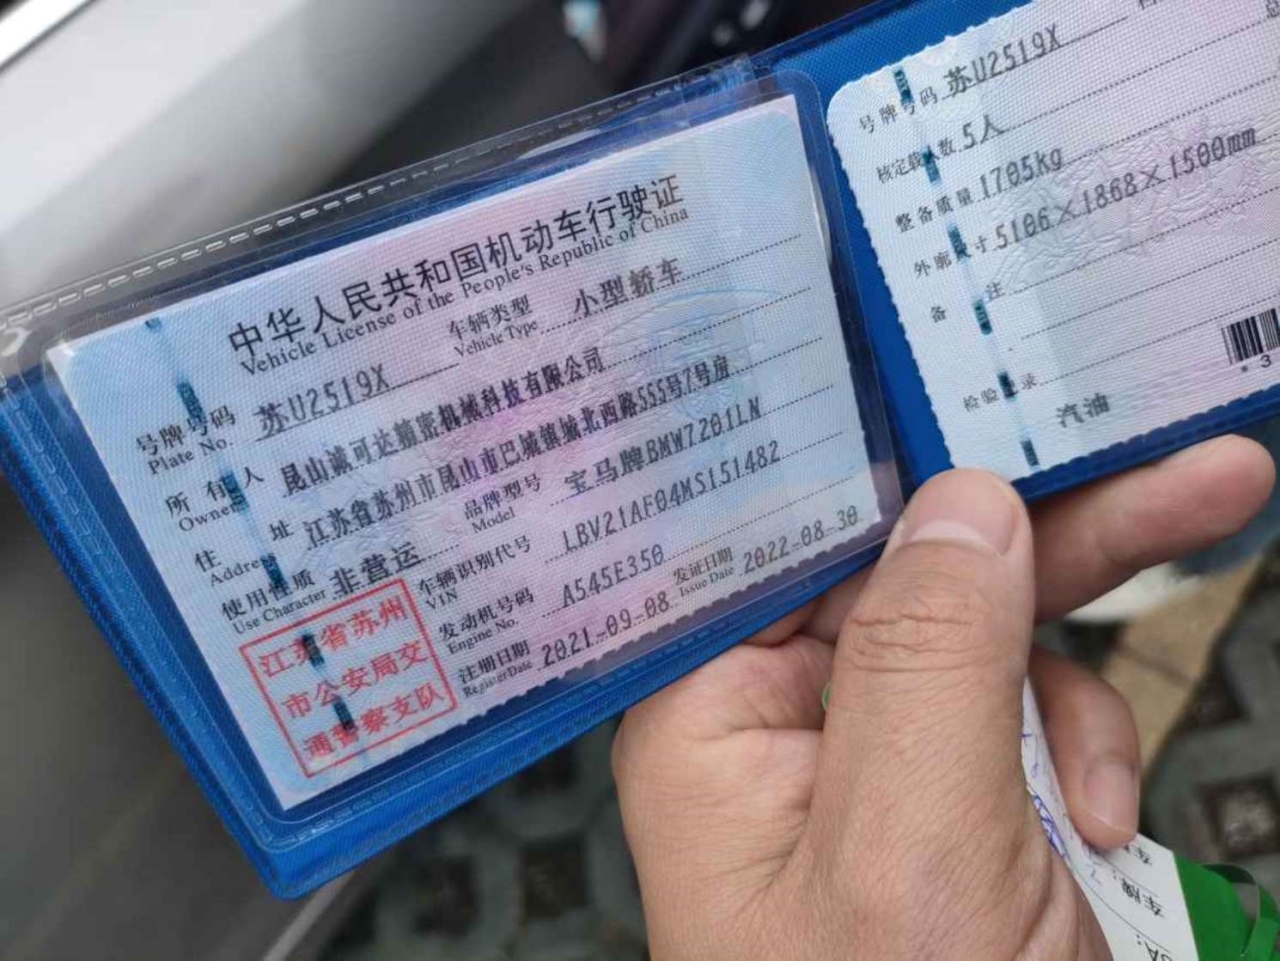 中华人民共和国机动车行驶证
Vehicle License of the People's Republic of China
号牌号码 苏U2519X 车辆类型 小型轿车
Plate No. Vehicle Type
所有人 昆山诚可达精密机械科技有限公司
Owner
住址 江苏省苏州市昆山市巴城镇城北西路555号7号房
Address
使用性质 非营运 品牌型号 宝马牌BMW7201LN
Use Character Model
车辆识别代号 LBV21AF04MS151482
VIN
发动机号码 A545E350
Engine No.
注册日期 2021-09-08 发证日期 2022-08-30
Register Date Issue Date
江苏省苏州
市公安局交
通警察支队
号牌号码 苏U2519X
核定载人数 5人
整备质量 1705kg
外廓尺寸 5106×1868×1500mm
备注
检验记录
汽油
*3
车牌: